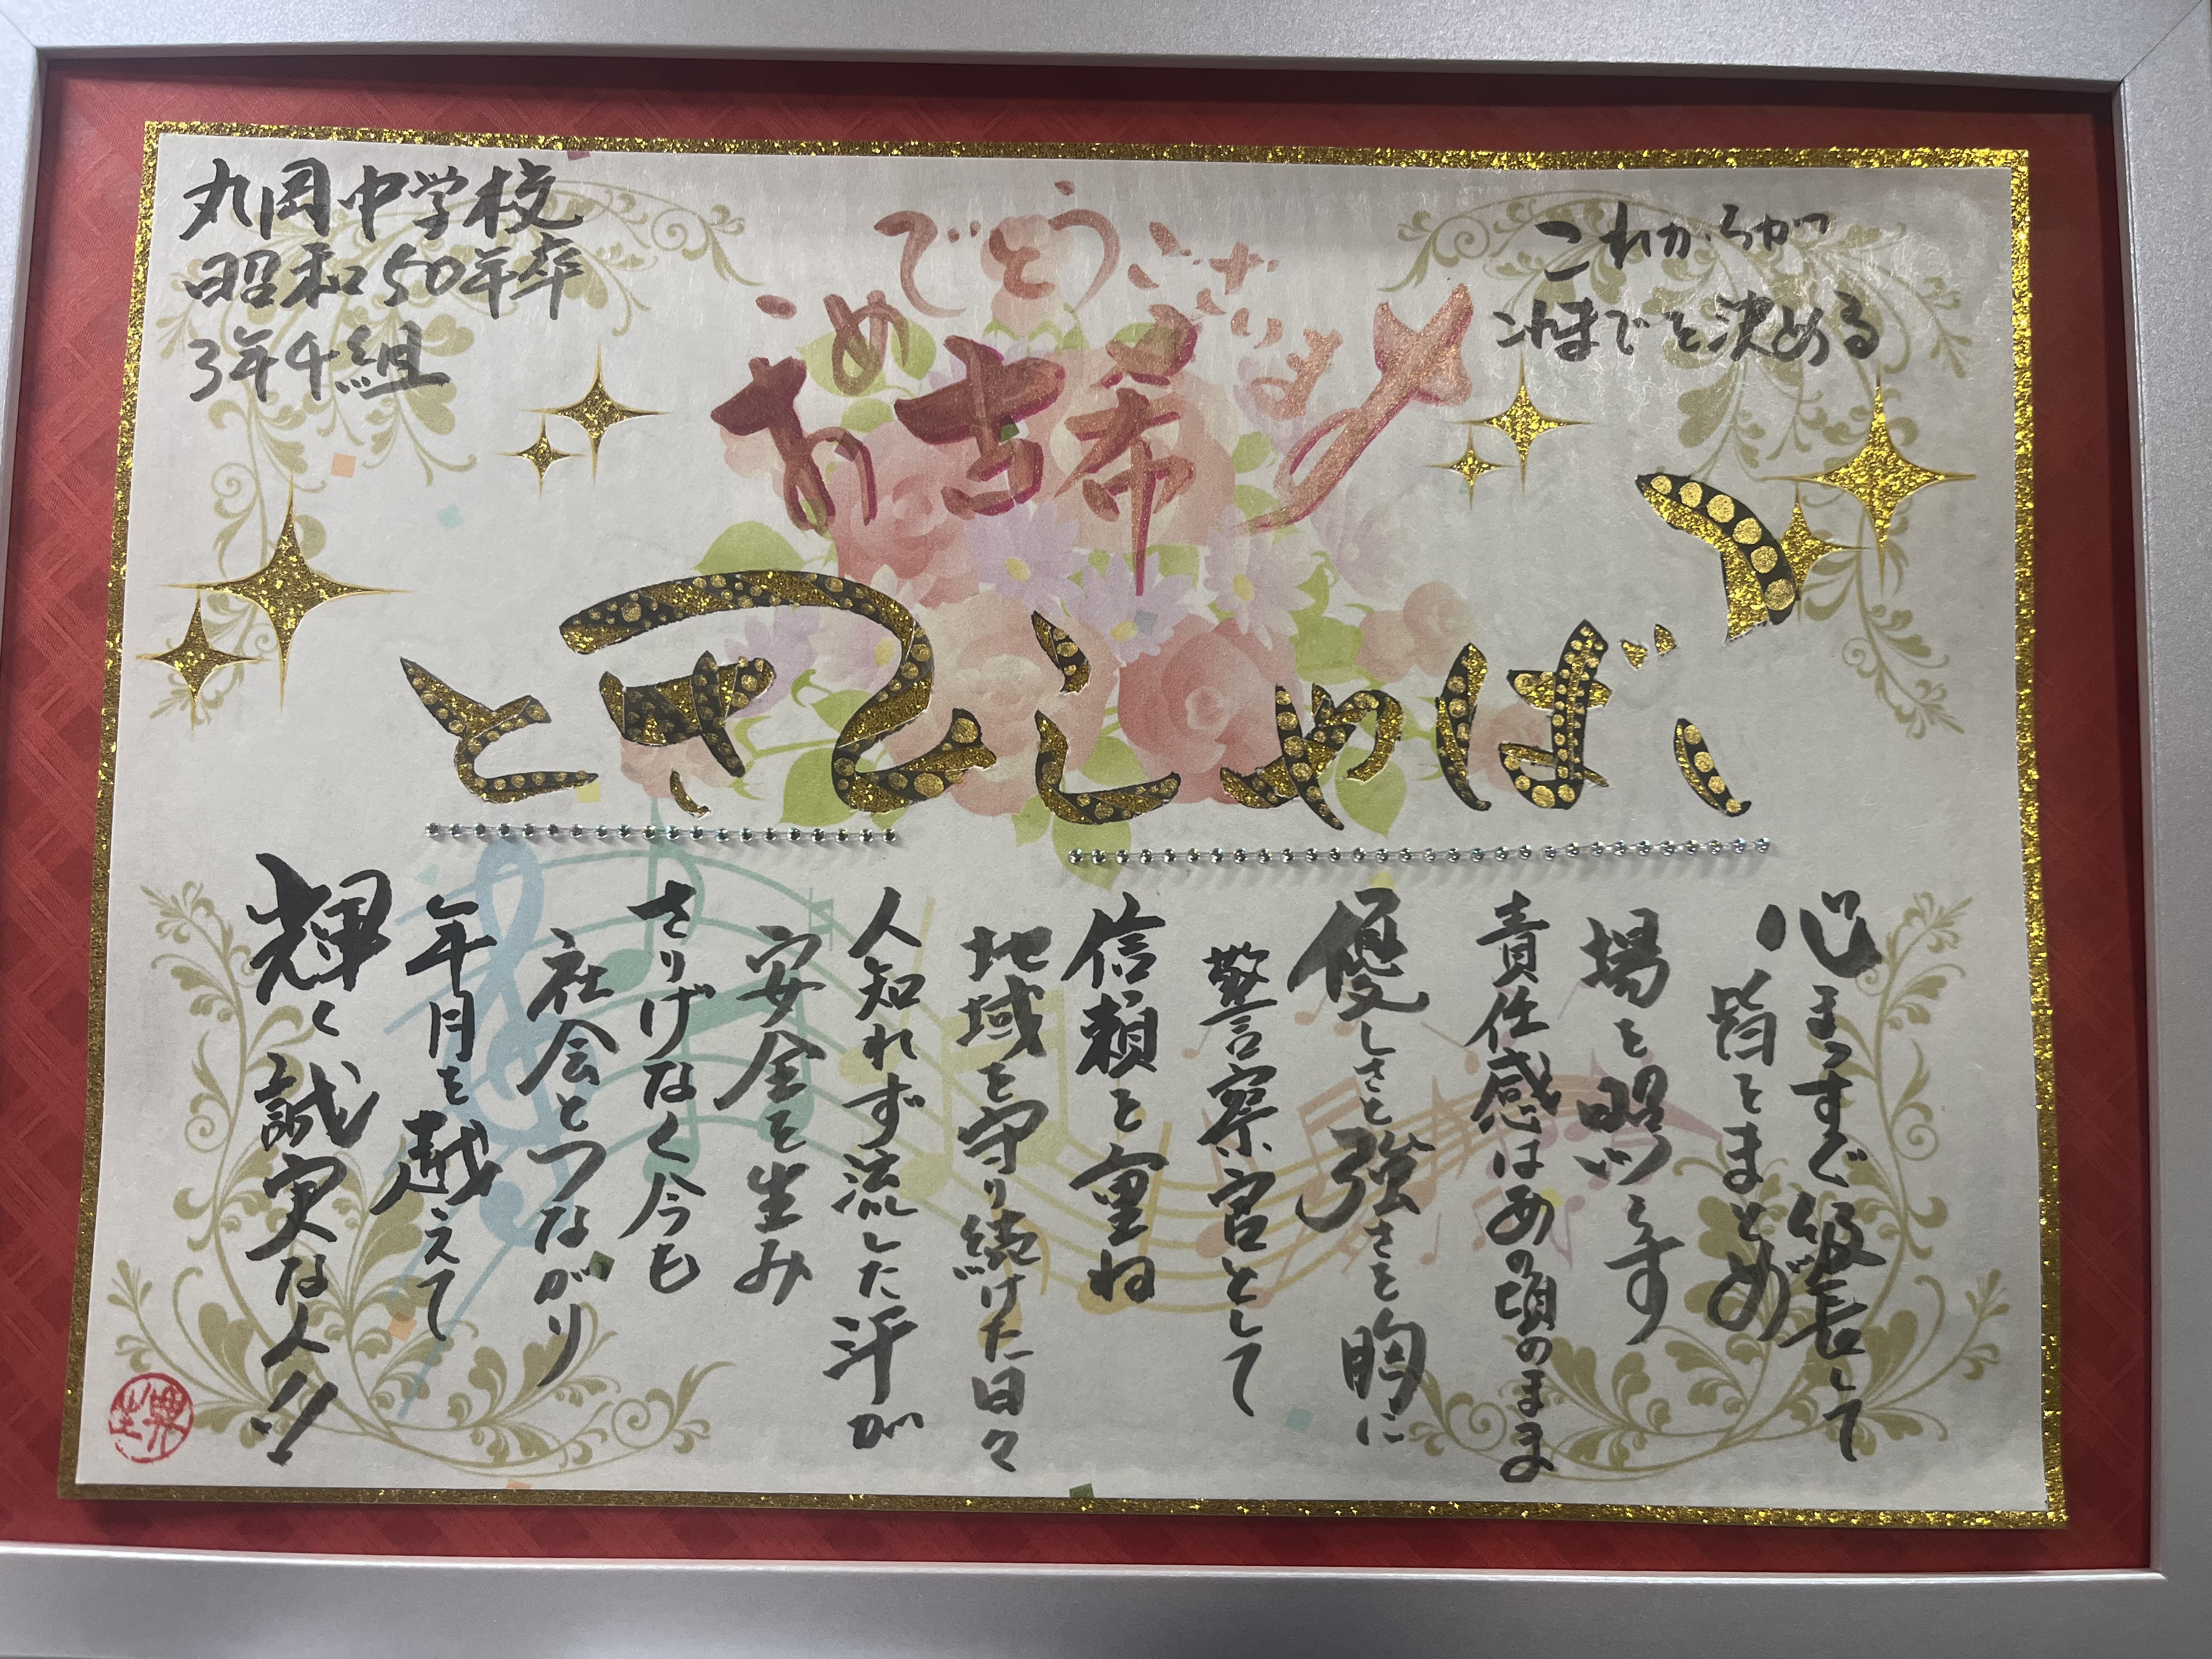 丸岡中学校
昭和50年卒
3年4組
おめでとうございます
古希
これからが
これまでを決める
心まっすぐ級長して
皆をまとめ
場を照らす
責任感はあの頃のまま
優しさと強さを胸に
警察官として
信頼を重ね
地域を守り続けた日々
人知れず流した汗が
安全を生み
さりげなく今も
社会とつながり
年月を越えて
輝く誠実な人!!